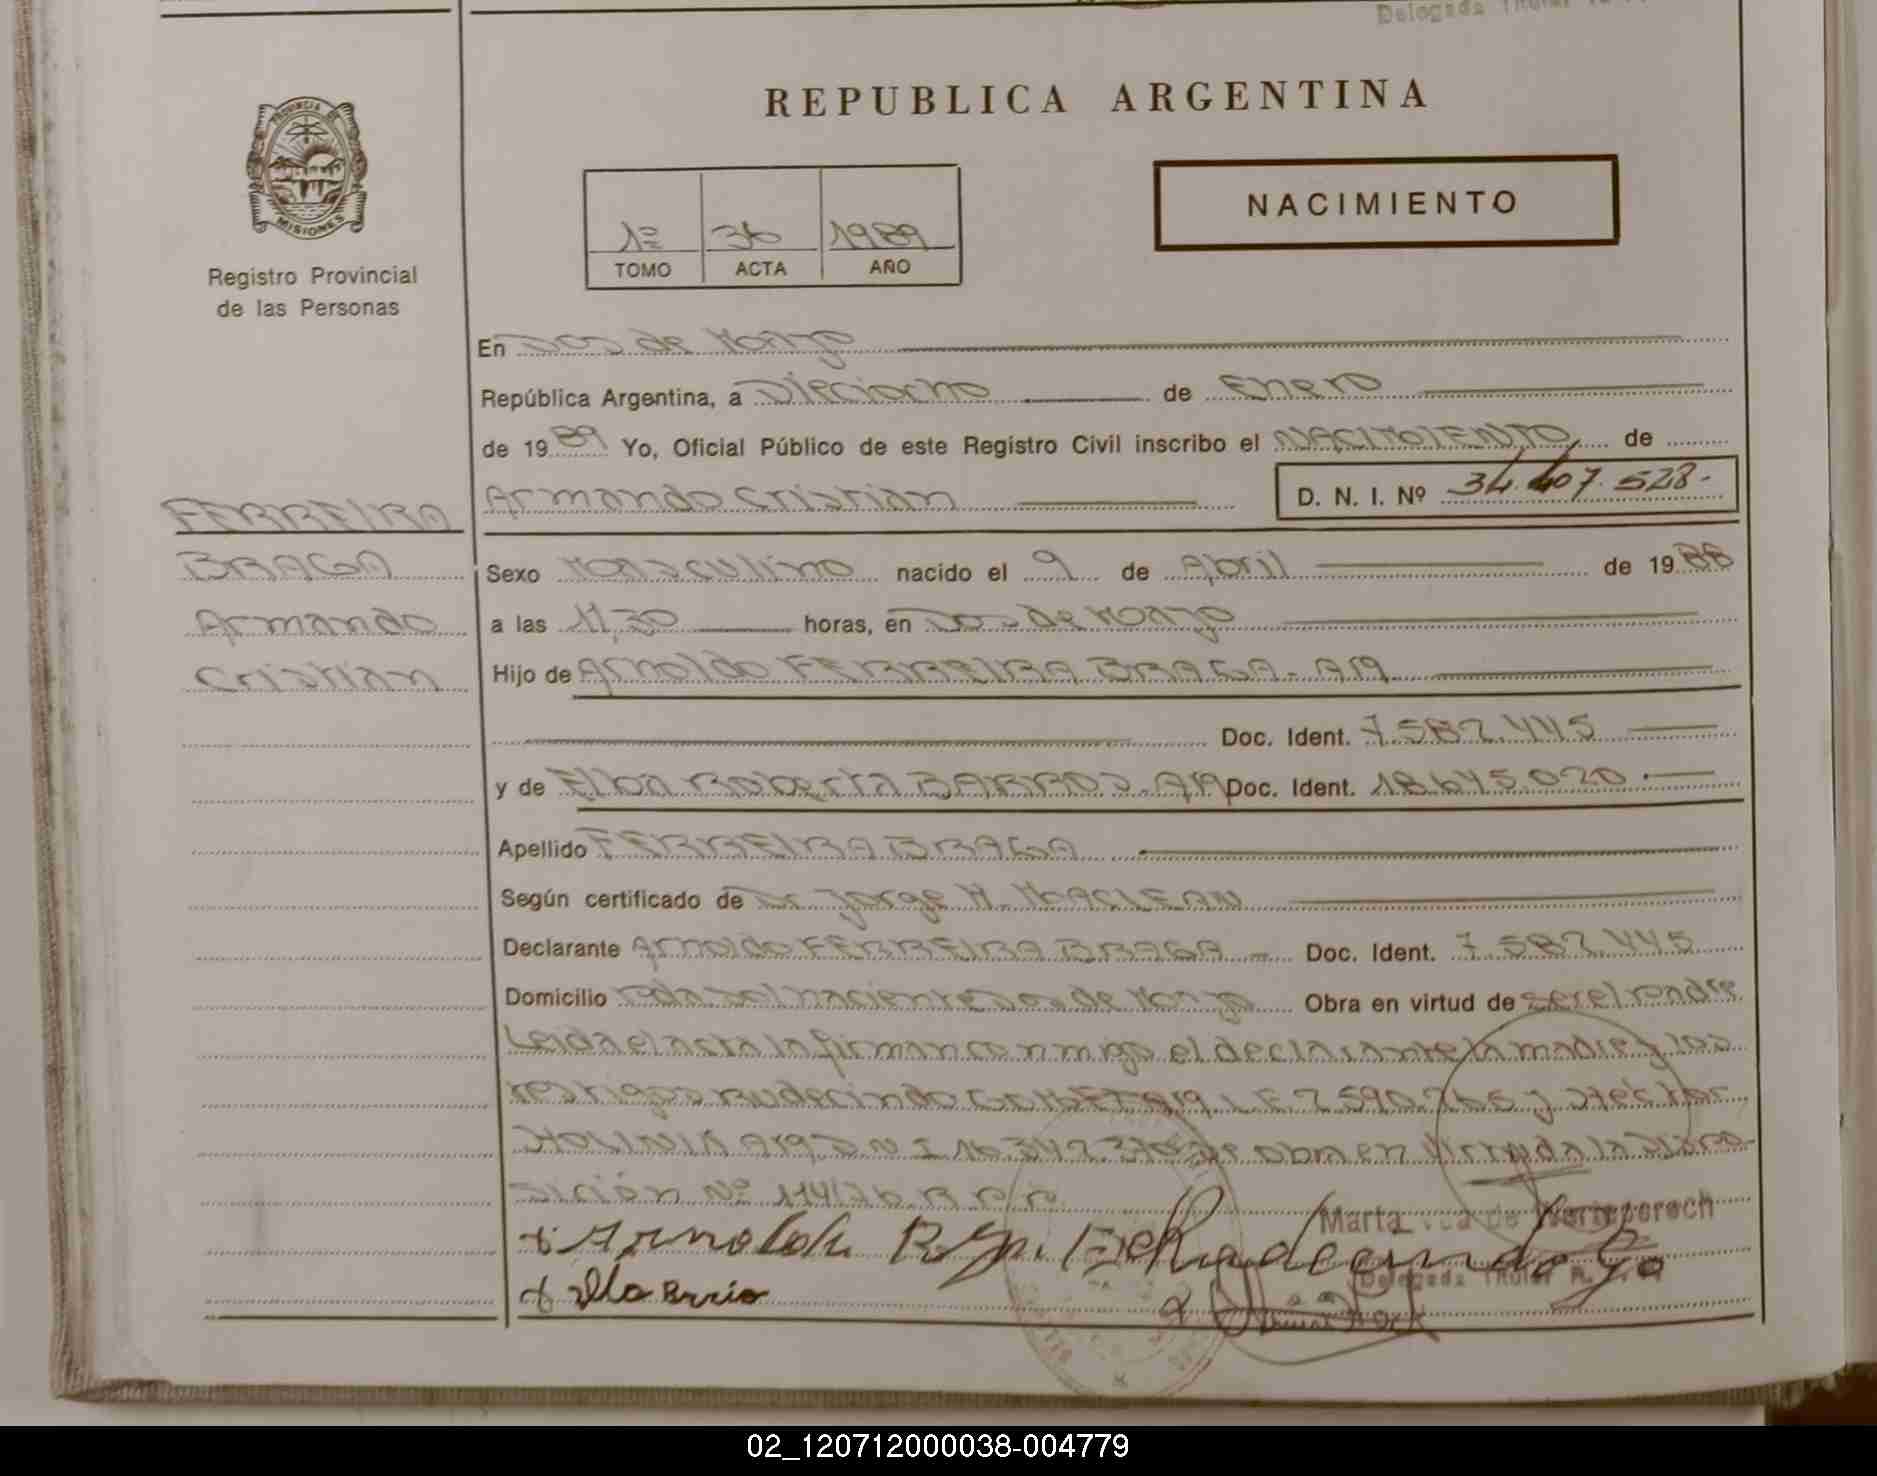 Delegada Titular
REPUBLICA ARGENTINA
PROVINCIA DE
MISIONES
Registro Provincial
de las Personas
1º 36 1989
TOMO ACTA AÑO
NACIMIENTO
En Dos de Mayo
República Argentina, a Dieciocho de Enero
de 1989 Yo, Oficial Público de este Registro Civil inscribo el NACIMIENTO de
Armando Cristian D. N. I. Nº 34.407.528.-
FERREIRA
BRAGA
Armando
Cristian
Sexo Masculino nacido el 9 de Abril de 1988
a las 11,30 horas, en Dos de Mayo
Hijo de Arnoldo FERREIRA BRAGA- Arg
Doc. Ident. 7.582.445
y de Elba Roberta BARROS- Arg Doc. Ident. 18.645.020
Apellido FERREIRA BRAGA
Según certificado de Dr. Jorge H. MACLEAN
Declarante Arnoldo FERREIRA BRAGA Doc. Ident. 7.582.445
Domicilio Pdas Sol naciente Dos de Mayo Obra en virtud de ser el Padre
Leida el acta la firman conmigo el declarante la madre y los
testigos Rudecindo Arg L.E. 7.590.765 y Hector
Arg D N I 16.342.370 Se obra en virtud a la Dispo
sición Nº 114/76 R P P
Arnoldo
Marta Vda de
Rudecindo
Delegada Titular R.
02_120712000038-004779